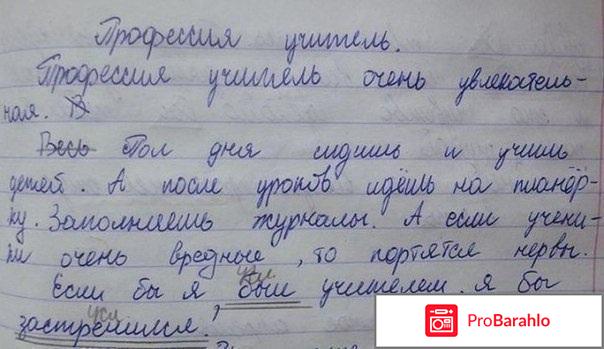 Профессия учитель.
Профессия учитель очень увлекатель-
ная. В
Весь Пол дня сидишь и учишь
детей. А после уроков идёшь на планёр-
ку. Заполняешь журналы. А если учени-
ки очень вредные, то портятся нервы.
усл
Если бы я был учителем. я бы
усл
застрелился.
ProBarahlo